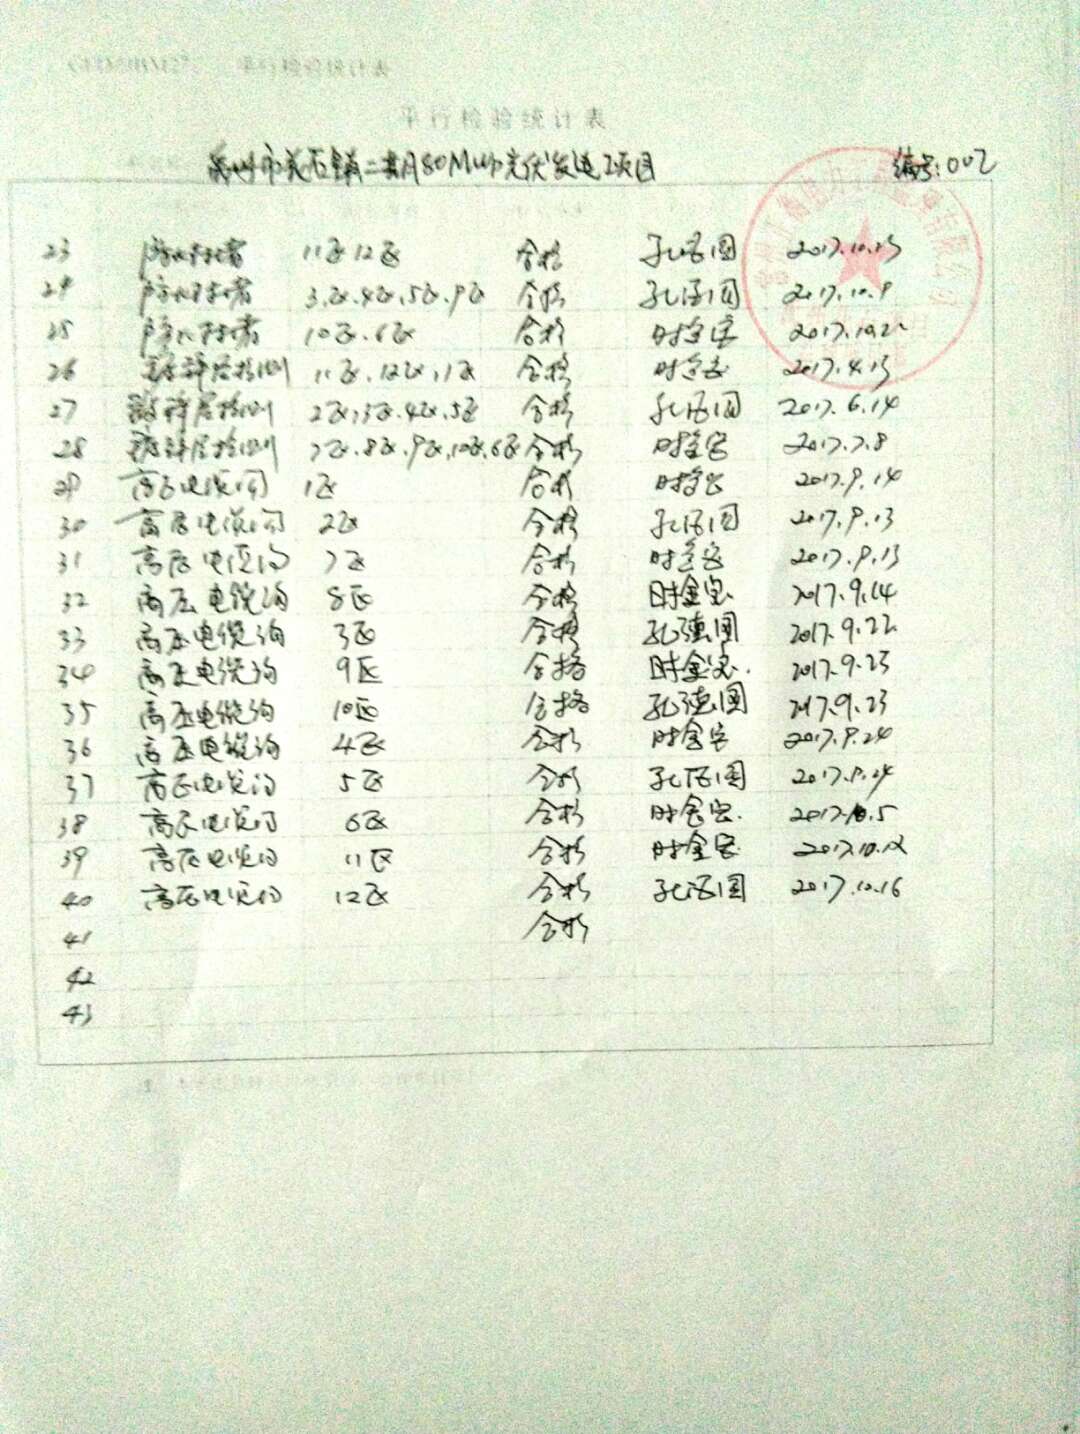 平行检验统计表
市石镇二期80MWp光伏发电项目 编号:002
23 防火封堵 11区12区 合格 孔德图 2017.10.23
24 防火封堵 3区.4区.5区.9区 合格 孔德图 2017.10.9
25 防火封堵 10区.6区 合格 时金宝 2017.10.22
26 11区.12区.1区 合格 时金宝 2017.4.13
27 2区,3区.4区.5区 合格 孔德图 2017.6.14
28 7区.8区.9区.10区.6区 合格 时金宝 2017.7.8
29 高压电缆沟 1区 合格 时金宝 2017.9.14
30 高压电缆沟 2区 合格 孔德图 2017.9.13
31 高压电缆沟 7区 合格 时金宝 2017.9.13
32 高压电缆沟 8区 合格 时金宝 2017.9.14
33 高压电缆沟 3区 合格 孔德图 2017.9.22
34 高压电缆沟 9区 合格 时金宝. 2017.9.23
35 高压电缆沟 10区 合格 孔德图 2017.9.23
36 高压电缆沟 4区 合格 时金宝 2017.9.24
37 高压电缆沟 5区 合格 孔德图 2017.9.24
38 高压电缆沟 6区 合格 时金宝. 2017.10.5
39 高压电缆沟 11区 合格 时金宝 2017.10.12
40 高压电缆沟 12区 合格 孔德图 2017.10.16
41 合格
42
43